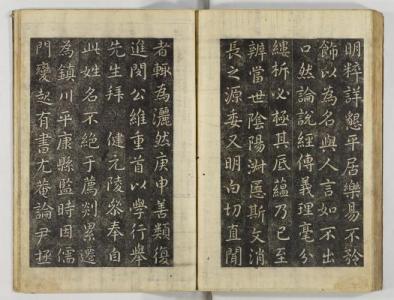 明粹詳懇平居樂易不矜
飾以為名與人言如不出
口然論說經傳義理毫分
縷析必極其底蘊乃已至
辨當世陰陽淑慝斯文消
長之源委又明白切直聞
者輒為灑然庚申善類復
進閔公維重首以學行舉
先生拜 健元陵參奉自
此姓名不絕于薦剡累遷
為鎮川平康縣監時因儒
門變起有書尤菴論尹拯